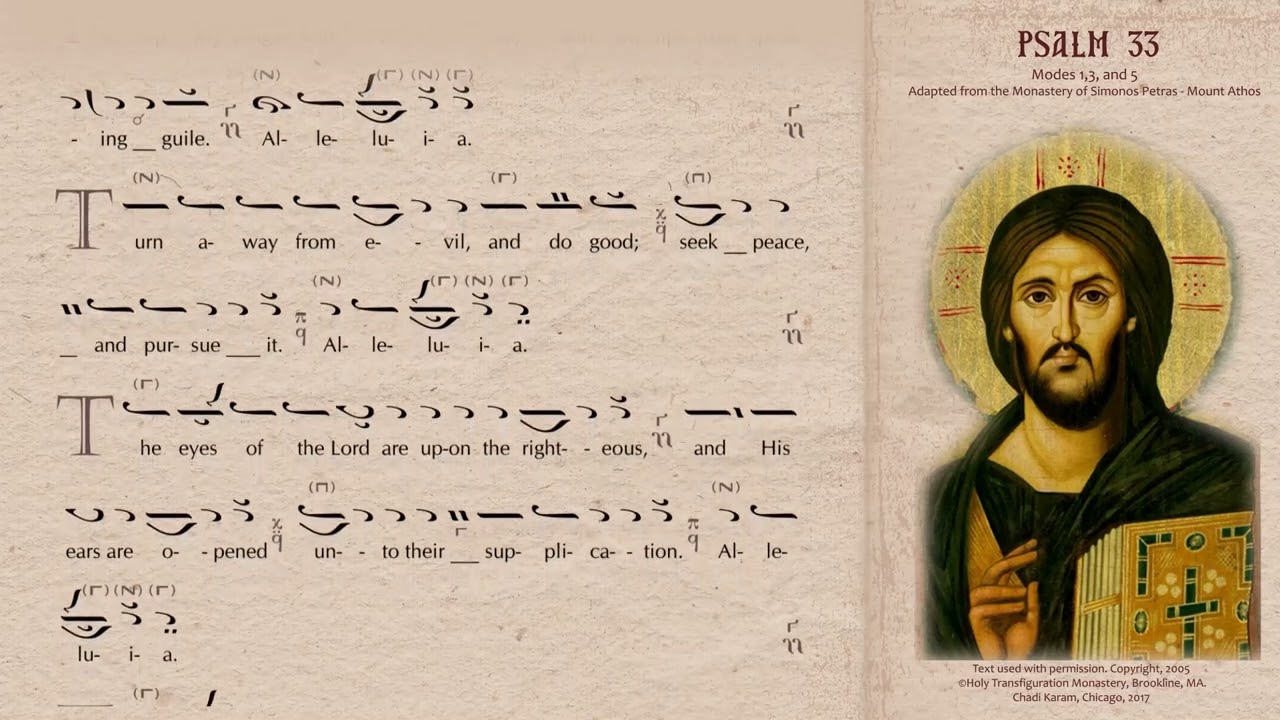 - ing __ guile. Al- le- lu- i- a.
Turn a- way from e- - vil, and do good; seek __ peace,
__ and pur- sue ___ it. Al- le- lu- i- a.
The eyes of the Lord are up-on the right- - eous, and His
ears are o- - pened un- - to their ___ sup- pli- ca- - tion. Al- le-
lu- i- a.
PSALM 33
Modes 1,3, and 5
Adapted from the Monastery of Simonos Petras - Mount Athos
Text used with permission. Copyright, 2005
©Holy Transfiguration Monastery, Brookline, MA.
Chadi Karam, Chicago, 2017